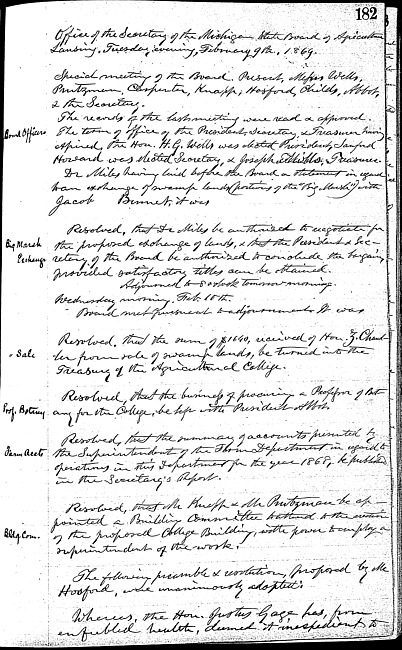 182
Office of the Secretary of the Michigan State Board of Agriculture
Lansing, Tuesday evening, February 9th, 1869.
Special meeting of the Board. Present, Messrs Wells,
Prutzman, Carpenter, Knapp, Hosford, Childs, Abbot,
& the Secretary.
The records of the last meeting were read & approved.
Board Officers
The term of office of the President, Secretary, & Treasurer having
expired, the Hon. H. G. Wells was elected President, Sanford
Howard was elected Secretary, & Joseph Mills, Treasurer.
Dr. Miles having laid before the Board a statement in regard
to an exchange of swamp lands (portions of the "Big Marsh") with
Jacob Bennet, it was
Big Marsh
Exchange
Resolved, that Dr Miles be authorized to negotiate for
the proposed exchange of lands, & that the President & Sec-
retary of the Board be authorized to conclude the bargain,
provided satisfactory titles can be obtained.
Adjourned to 8 o'clock tomorrow morning.
Wednesday morning, Feb. 10th.
Board met pursuant to adjournment. It was
" Sale
Resolved, that the sum of $1640, received of Hon. Z. Chand-
ler from sale of swamp lands, be turned into the
Treasury of the Agricultural College.
Prof. Botany
Resolved, that the business of procuring a Professor of Bot-
any for the College, be left with President Abbot.
Farm Accts
Resolved, that the summary of accounts presented by
the Superintendent of the Farm Department in regard to
operations in this Department for the year 1868, be published
in the Secretary's Report.
Bldg Com.
Resolved, that Mr Knapp & Mr Prutzman be ap-
pointed a Building Committee to attend to the
of the proposed College Building, with power to employ a
superintendent of the work.
The following preamble & resolution, proposed by Mr
Hosford, were unanimously adopted:
Whereas, the Hon. Justus Gage has, from
enfeebled health, deemed it inexpedient to